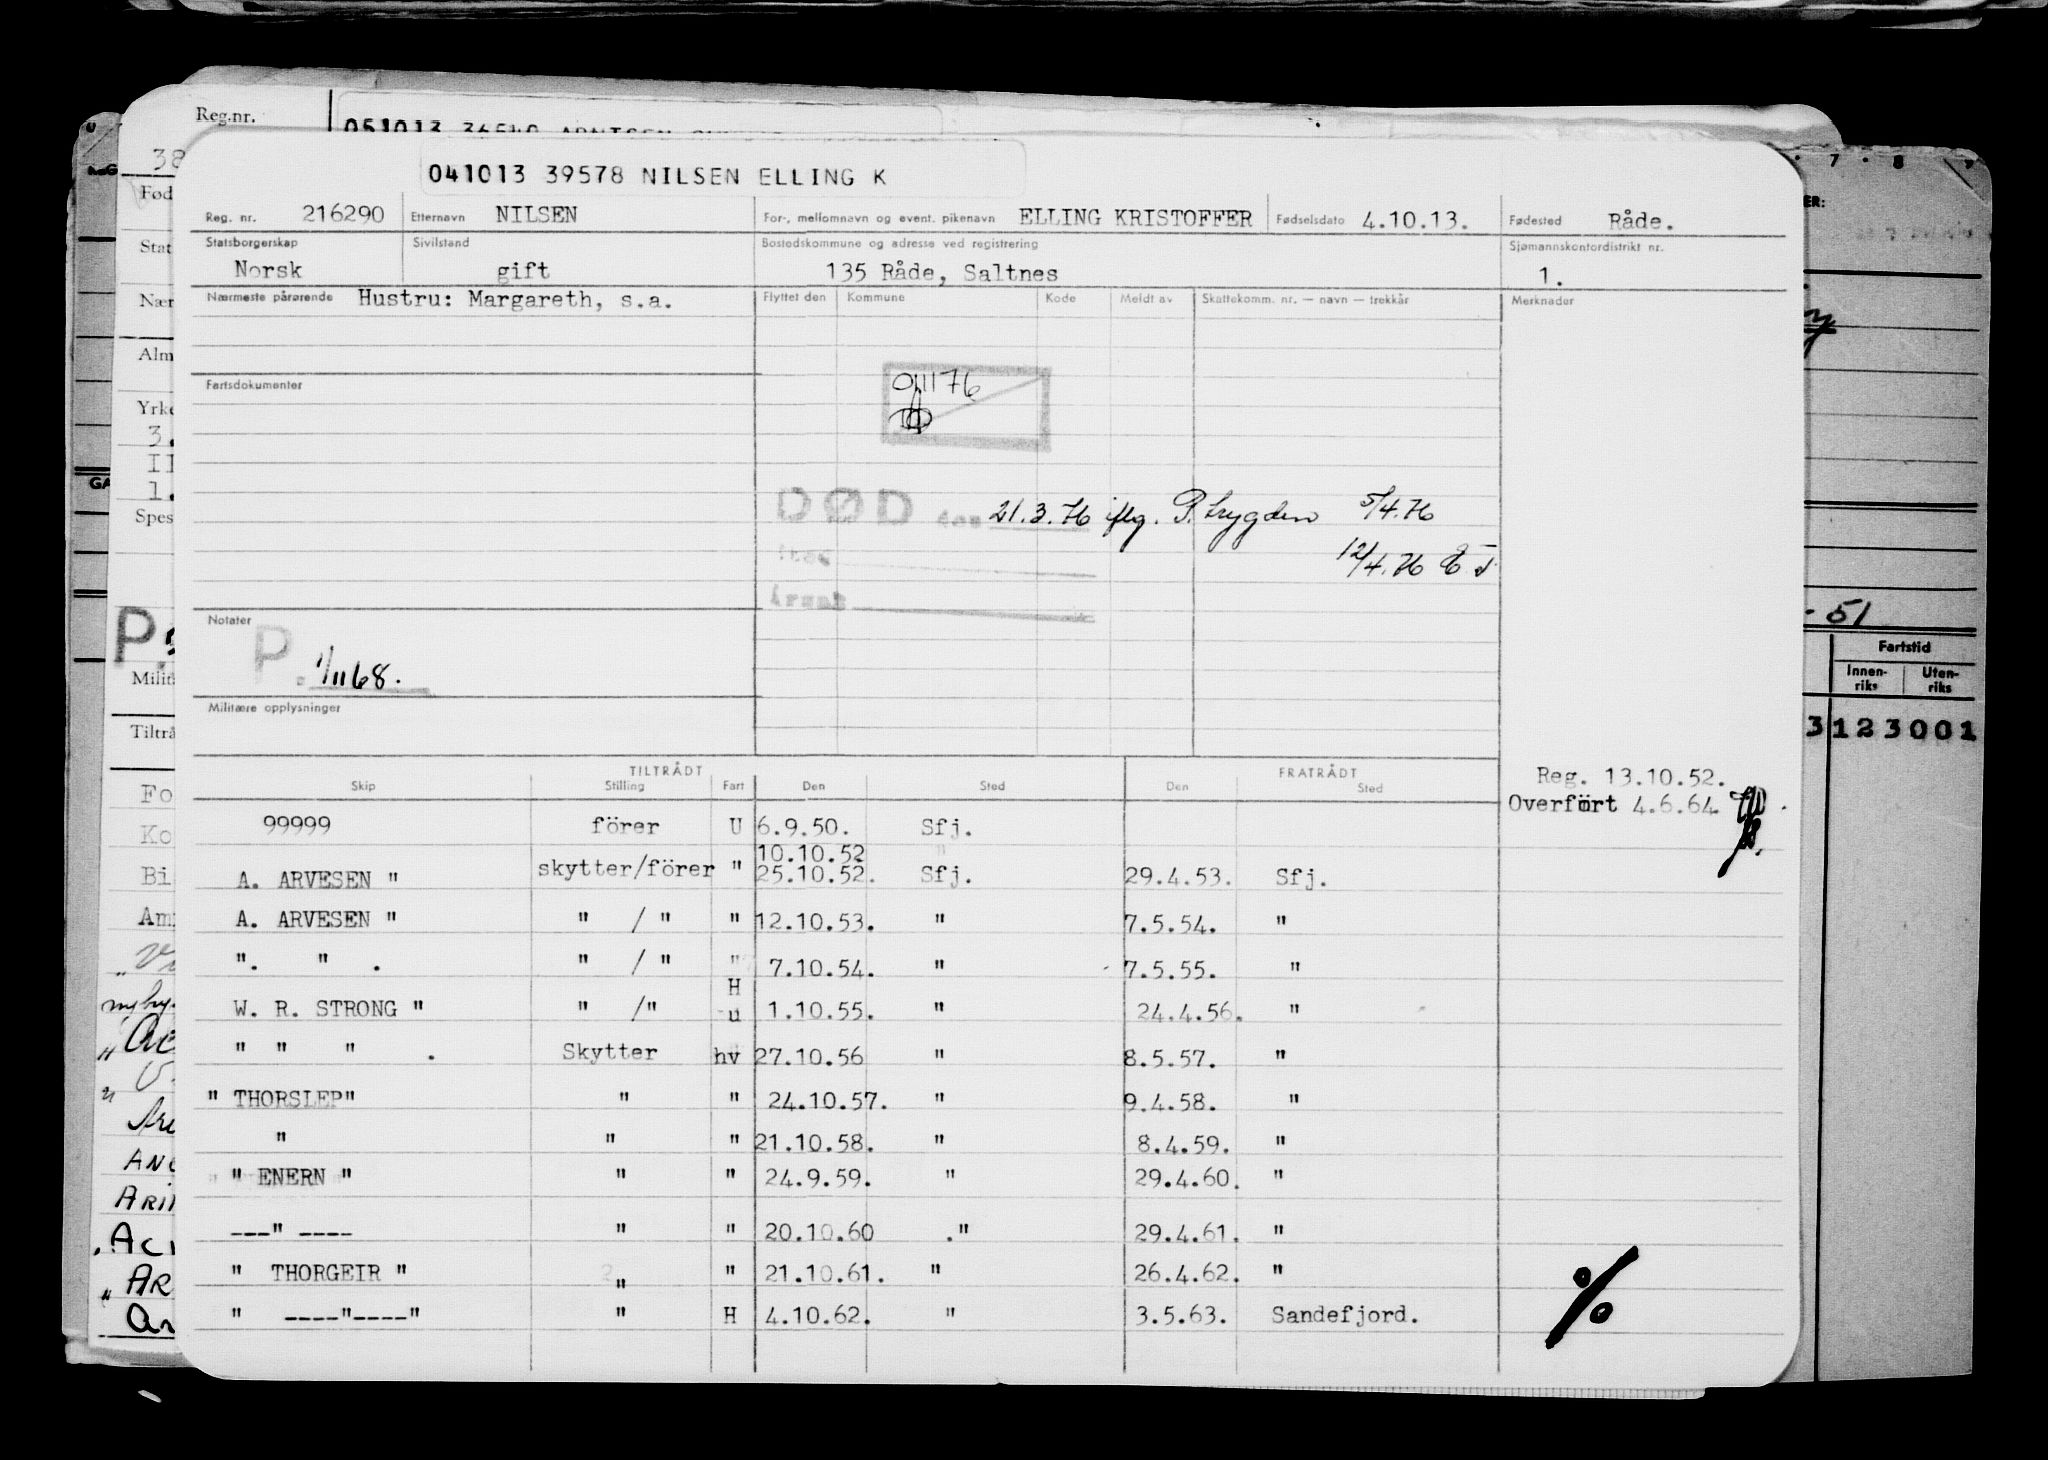 Reg.nr.
041013 39578 NILSEN ELLING K
Reg. nr. 216290 Etternavn NILSEN For-, mellomnavn og event. pikenavn ELLING KRISTOFFER Fødselsdato 4.10.13. Fødested Råde.
Statsborgerskap Sivilstand Bostedskommune og adresse ved registrering Sjømannskontordistrikt nr.
Norsk gift 135 Råde, Saltnes 1.
Nærmeste pårørende Hustru: Margareth, s.a. Flyttet den Kommune Kode Meldt av Skattekomm. nr. — navn — trekkår Merknader
Fartsdokumenter
DØD den 21.3.76 iflg. P.trygden 5/4.76
12/4.76
Årsak
Notater
P. 1/11 68.
Militære opplysninger
TILTRÅDT FRATRÅDT
Skip Stilling Fart Den Sted Den Sted
Reg. 13.10.52.
Overført 4.6.64.
99999 förer U 6.9.50. Sfj.
10.10.52 "
A. ARVESEN " skytter/förer " 25.10.52. Sfj. 29.4.53. Sfj.
A. ARVESEN " " / " " 12.10.53. " 7.5.54. "
". " . " / " " 7.10.54. " 7.5.55. "
H
W. R. STRONG " " /" u 1.10.55. " 24.4.56. "
" " " . Skytter hv 27.10.56 " 8.5.57. "
" THORSLEP" " " 24.10.57. " 9.4.58. "
" " " 21.10.58. " 8.4.59. "
" ENERN " " " 24.9.59. " 29.4.60. "
---" ---- " " 20.10.60 ." 29.4.61. "
" THORGEIR " " " 21.10.61. " 26.4.62. "
" ----"----" " H 4.10.62. " 3.5.63. Sandefjord.
%
- 51
Fartstid
Innen-riks Uten-riks
3 123001